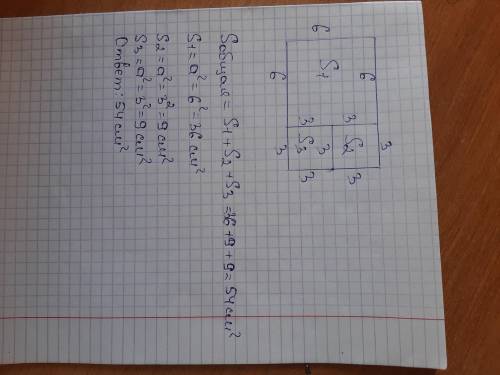 6
6 S1 6
3 3
3 S3 3 S2 3
3 3
Sобщая = S1 + S2 + S3 = 36 + 9 + 9 = 54 см²
S1 = a² = 6² = 36 см²
S2 = a² = 3² = 9 см²
S3 = a² = 3² = 9 см²
Ответ: 54 см²